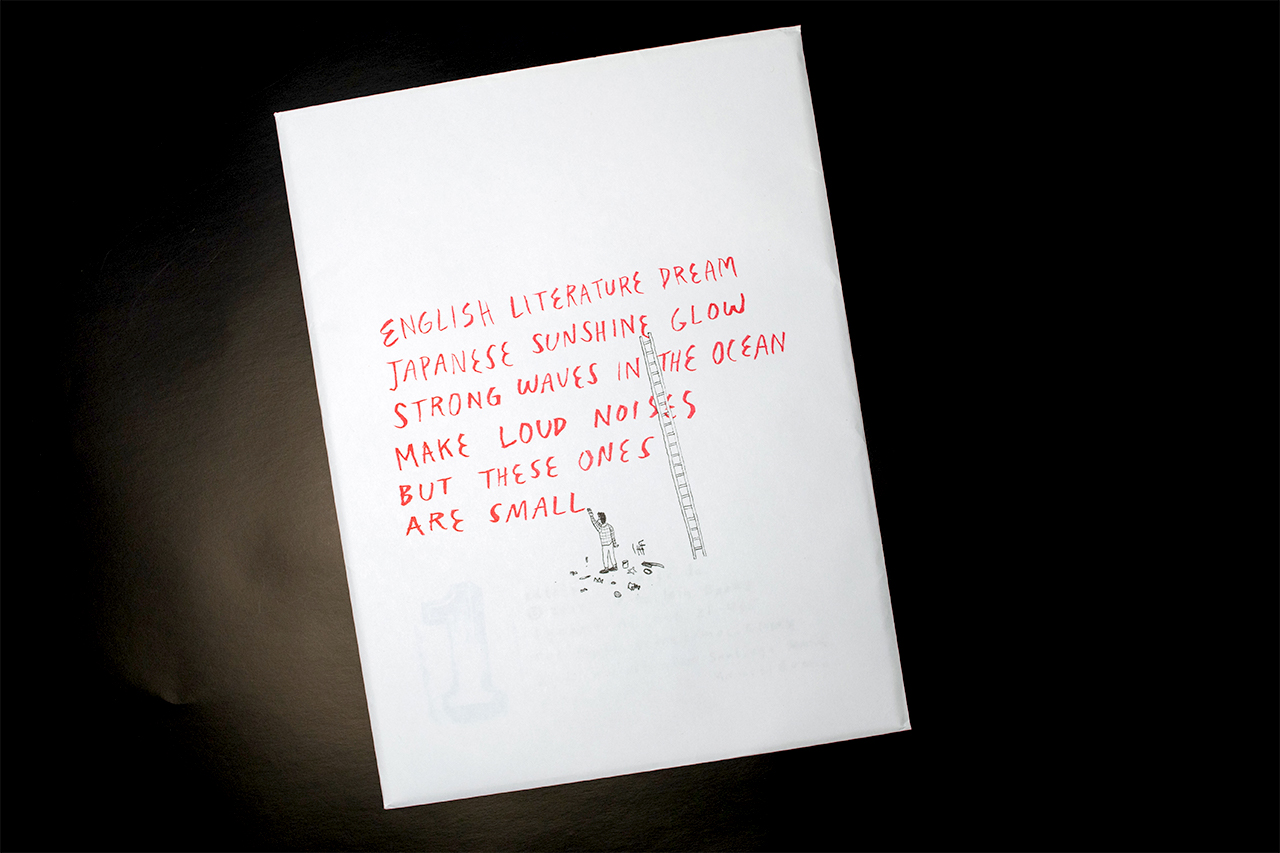 ENGLISH LITERATURE DREAM
JAPANESE SUNSHINE GLOW
STRONG WAVES IN THE OCEAN
MAKE LOUD NOISES
BUT THESE ONES
ARE SMALL.
1